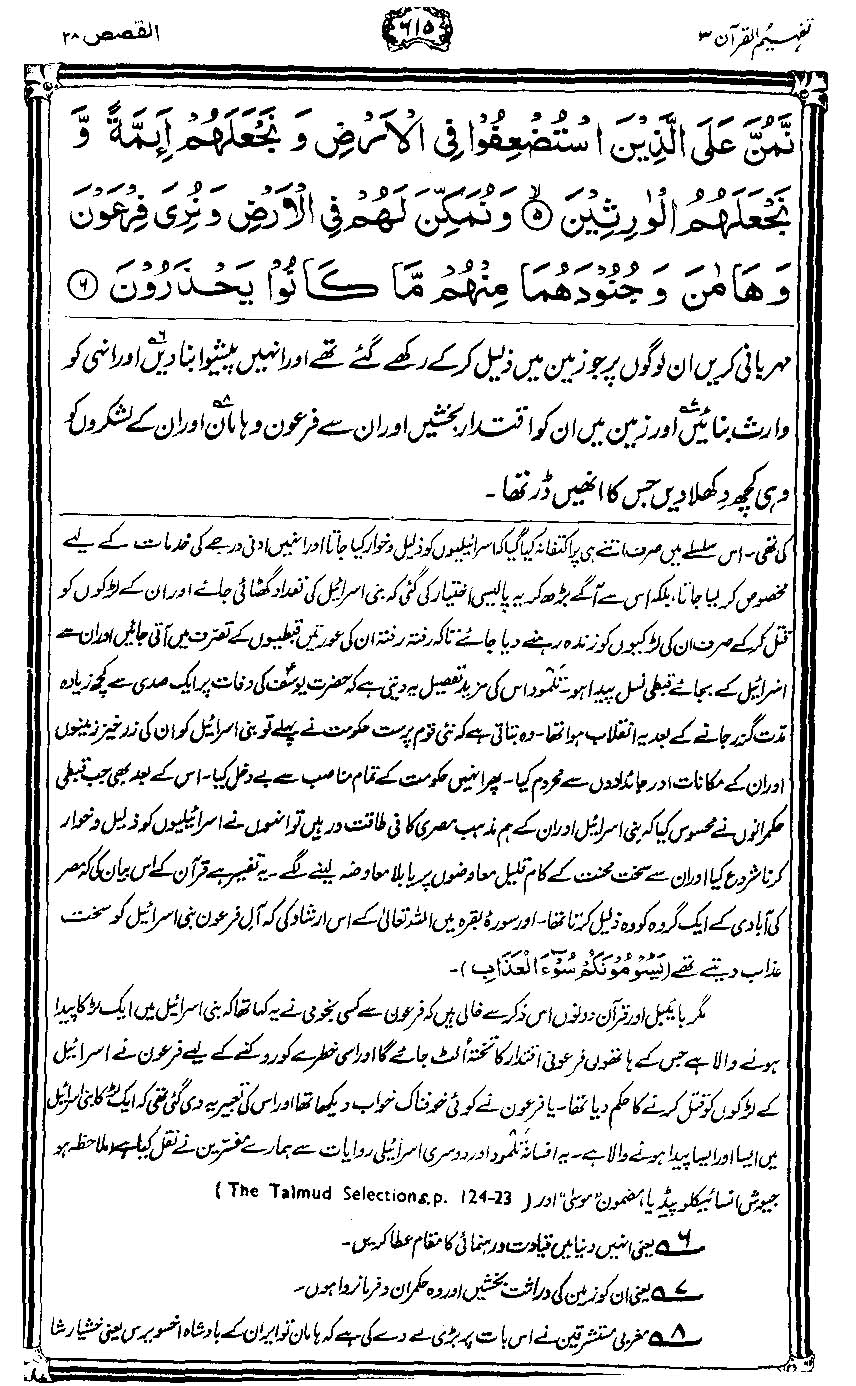 تفہیم القرآن ۳
۶۱۵
القصص ۲۸
نَّمُنَّ عَلَى الَّذِيْنَ اسْتُضْعِفُوْا فِي الْاَرْضِ وَ نَجْعَلَهُمْ اَئِمَّةً وَّ
نَجْعَلَهُمُ الْوٰرِثِيْنَ ۙ‏﴿۵﴾ وَ نُمَكِّنَ لَهُمْ فِي الْاَرْضِ وَ نُرِيَ فِرْعَوْنَ
وَ هَامٰنَ وَ جُنُوْدَهُمَا مِنْهُمْ مَّا كَانُوْا يَحْذَرُوْنَ ﴿۶﴾
مہربانی کریں ان لوگوں پر جو زمین میں ذلیل کر کے رکھے گئے تھے اور انہیں پیشوا بنا دیں۶ اور انہی کو
وارث بنائیں۷ اور زمین میں ان کو اقتدار بخشیں اور ان سے فرعون و ہامان۸ اور ان کے لشکروں کو
وہی کچھ دکھلا دیں جس کا انھیں ڈر تھا۔
کی تھی۔ اس سلسلے میں صرف اتنے ہی پر اکتفا نہ کیا گیا کہ اسرائیلیوں کو ذلیل و خوار کیا جاتا اور انہیں ادنیٰ درجے کی خدمات کے لیے
مخصوص کر لیا جاتا، بلکہ اس سے آگے بڑھ کر یہ پالیسی اختیار کی گئی کہ بنی اسرائیل کی تعداد گھٹائی جائے اور ان کے لڑکوں کو
قتل کر کے صرف ان کی لڑکیوں کو زندہ رہنے دیا جائے تاکہ رفتہ رفتہ ان کی عورتیں قبطیوں کے تصرف میں آتی جائیں اور ان سے
اسرائیل کے بجائے قبطی نسل پیدا ہو۔ تلمود اس کی مزید تفصیل یہ دیتی ہے کہ حضرت یوسف کی وفات پر ایک صدی سے کچھ زیادہ
مدت گزر جانے کے بعد یہ انقلاب ہوا تھا۔ وہ بتاتی ہے کہ نئی قوم پرست حکومت نے پہلے تو بنی اسرائیل کو ان کی زرخیز زمینوں
اور ان کے مکانات اور جائدادوں سے محروم کیا۔ پھر انہیں حکومت کے تمام مناصب سے بے دخل کیا۔ اس کے بعد بھی جب قبطی
حکمرانوں نے محسوس کیا کہ بنی اسرائیل اور ان کے ہم مذہب مصری کافی طاقت ور ہیں تو انہوں نے اسرائیلیوں کو ذلیل و خوار
کرنا شروع کیا اور ان سے سخت محنت کے کام قلیل معاوضوں پر یا بلا معاوضہ لینے لگے۔ یہ تفسیر ہے قرآن کے اس بیان کی کہ مصر
کی آبادی کے ایک گروہ کو وہ ذلیل کرتا تھا۔ اور سورۂ بقرہ میں اللہ تعالیٰ کے اس ارشاد کی کہ آلِ فرعون بنی اسرائیل کو سخت
عذاب دیتے تھے (يَسُوْمُوْنَكُمْ سُوْٓءَ الْعَذَابِ)۔
مگر بائیبل اور قرآن دونوں اس ذکر سے خالی ہیں کہ فرعون سے کسی نجومی نے یہ کہا تھا کہ بنی اسرائیل میں ایک لڑکا پیدا
ہونے والا ہے جس کے ہاتھوں فرعونی اقتدار کا تختہ الٹ جائے گا اور اسی خطرے کو روکنے کے لیے فرعون نے اسرائیل
کے لڑکوں کو قتل کرنے کا حکم دیا تھا۔ یا فرعون نے کوئی خوفناک خواب دیکھا تھا اور اس کی تعبیر یہ دی گئی تھی کہ ایک لڑکا بنی اسرائیل
میں ایسا اور ایسا پیدا ہونے والا ہے۔ یہ افسانہ تلمود اور دوسری اسرائیلی روایات سے ہمارے مفسرین نے نقل کیا ہے (ملاحظہ ہو
جیوش انسائیکلوپیڈیا، مضمون "موسیٰ" اور The Talmud Selections, p. 124-23)
۶ یعنی انہیں دنیا میں قیادت و رہنمائی کا مقام عطا کریں۔
۷ یعنی ان کو زمین کی وراثت بخشیں اور وہ حکمران و فرمانروا ہوں۔
۸ مغربی مستشرقین نے اس بات پر بڑی لے دے کی ہے کہ ہامان تو ایران کے بادشاہ اخسویرس یعنی خشیارشا